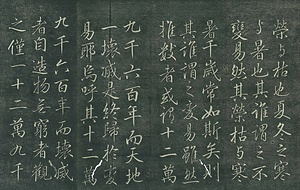 榮与枯也夏冬之
与暑也其誰謂之不
變易然其榮枯与寒
暑千歲常如斯矣則
其誰謂之變易雖然
推數者或謂十二萬
九千六百年而天地
一壞滅是終歸於變
易耶烏呼其十二萬
九千六百年而壞滅
者自造物無窮者觀
之僅一十二萬九千